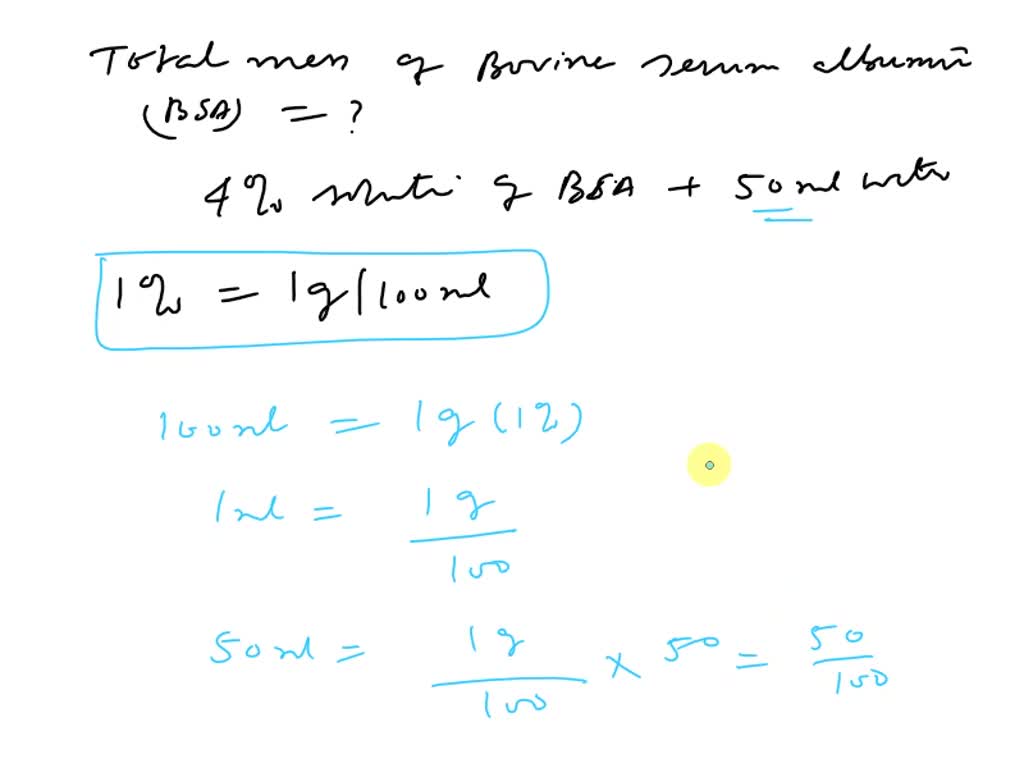 Total mass of Bovine serum albumin
(BSA) = ?
4% solution of BSA + 50 ml water
1% = 1g/100ml
100ml = 1g (1%)
1ml = 1g/100
50ml = 1g/100 × 50 = 50/100